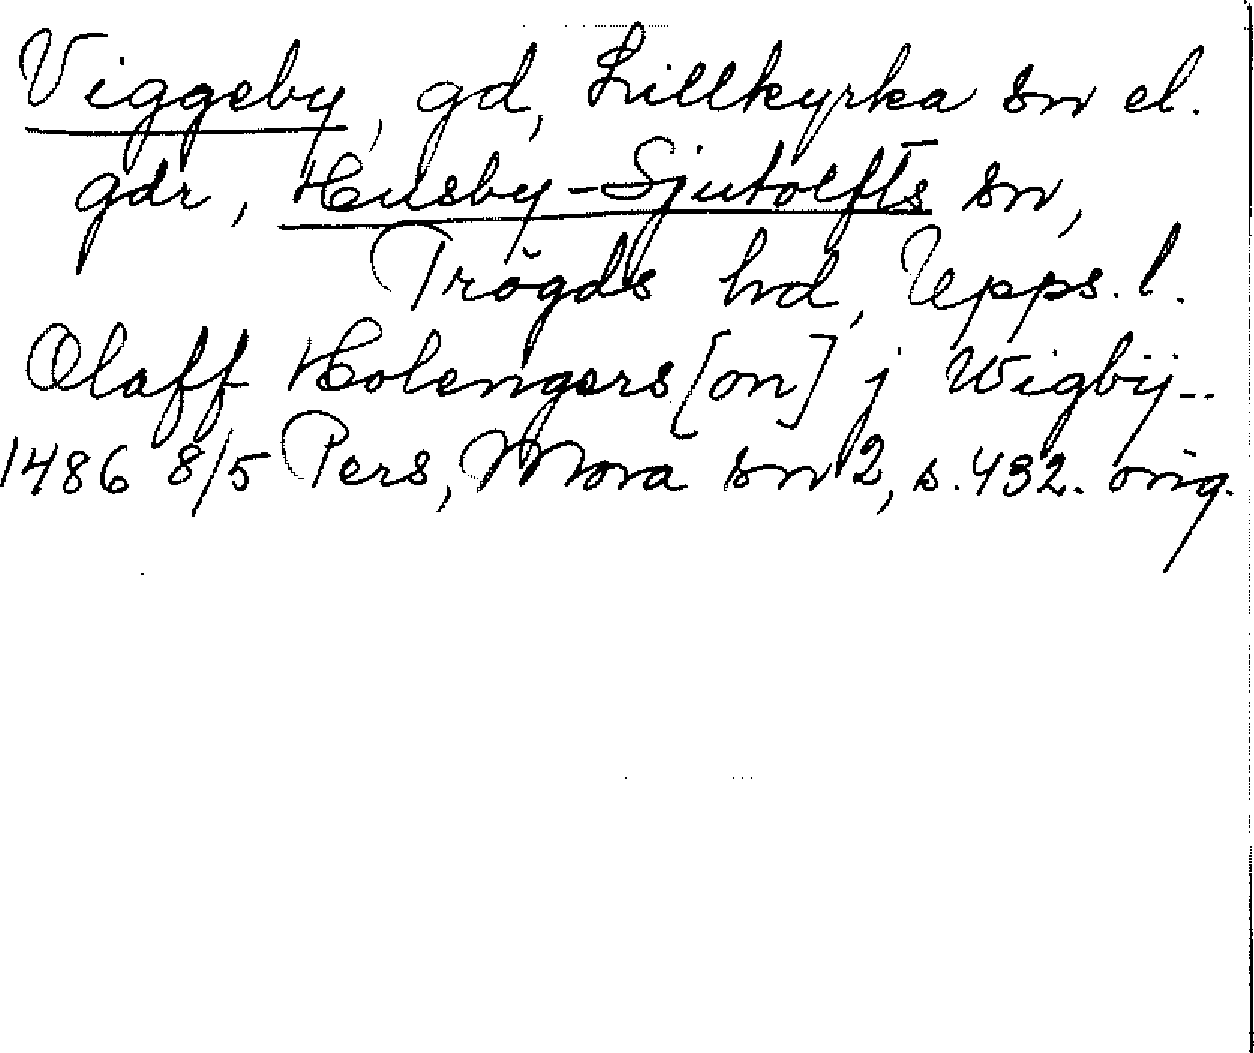 Viggeby, gd, Lillkyrka sn el.
gdr, Husby-Sjutolfts sn,
Trögds hd, Upps. l.
Olaff Holengers[on] j Wigbÿ--
1486 8/5 Pers, Mora sn 2, s. 432. orig.